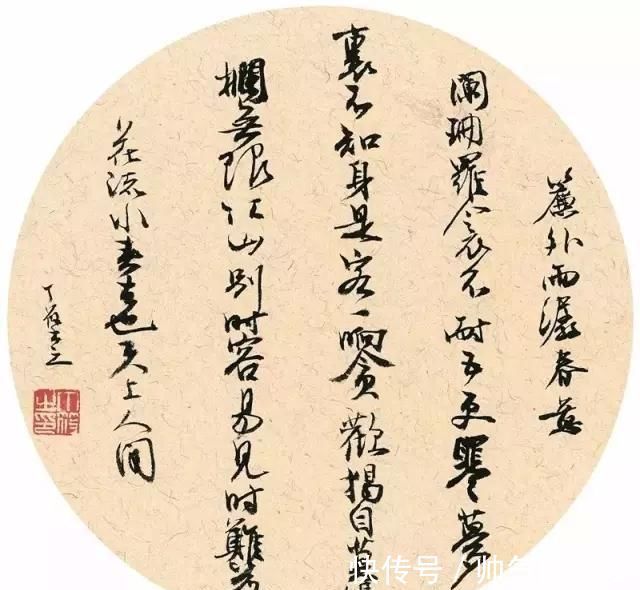 簾外雨潺春意
瀾珊羅衾不耐五更寒夢
裏不知身是客一晌貪歡獨自莫
欄無限江山別時容易見時難落
花流水春去也天上人間
快传号